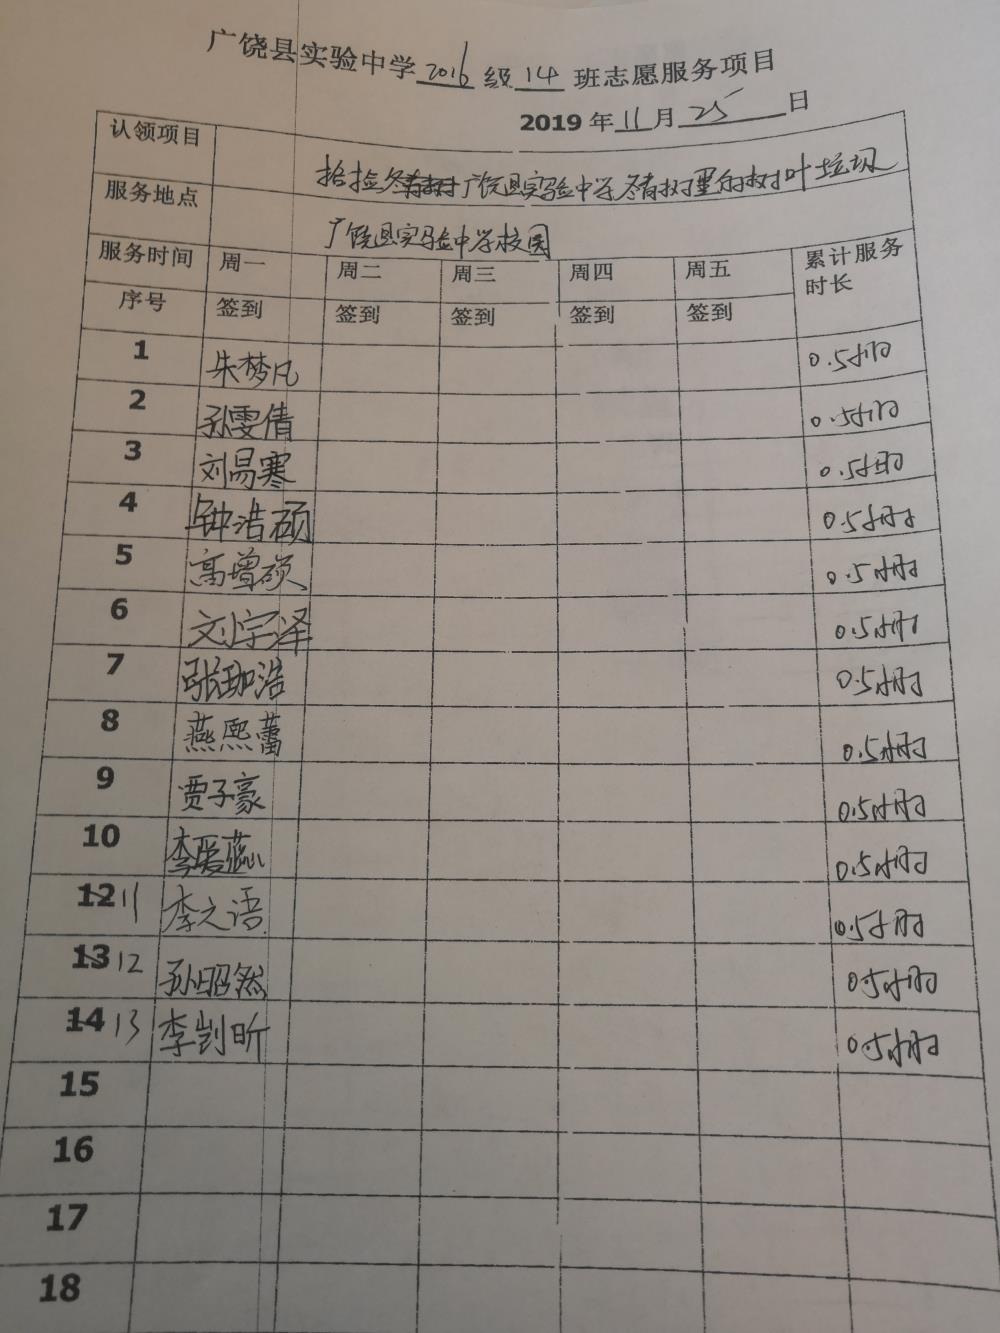 广饶县实验中学2016级14班志愿服务项目
2019年11月25日
认领项目 捡冬青树广饶县实验中学冬青树里的树叶垃圾
服务地点 广饶县实验中学校园
服务时间 周一 周二 周三 周四 周五 累计服务时长
序号 签到 签到 签到 签到 签到
1 朱梦凡 0.5小时
2 孙雯倩 0.5小时
3 刘易寒 0.5小时
4 钟浩硕 0.5小时
5 高曾硕 0.5小时
6 刘宇泽 0.5小时
7 张珈浩 0.5小时
8 燕熙蕾 0.5小时
9 贾子豪 0.5小时
10 李爱蕊 0.5小时
12 11 李之语 0.5小时
13 12 孙昭然 0.5小时
14 13 李剀昕 0.5小时
15
16
17
18